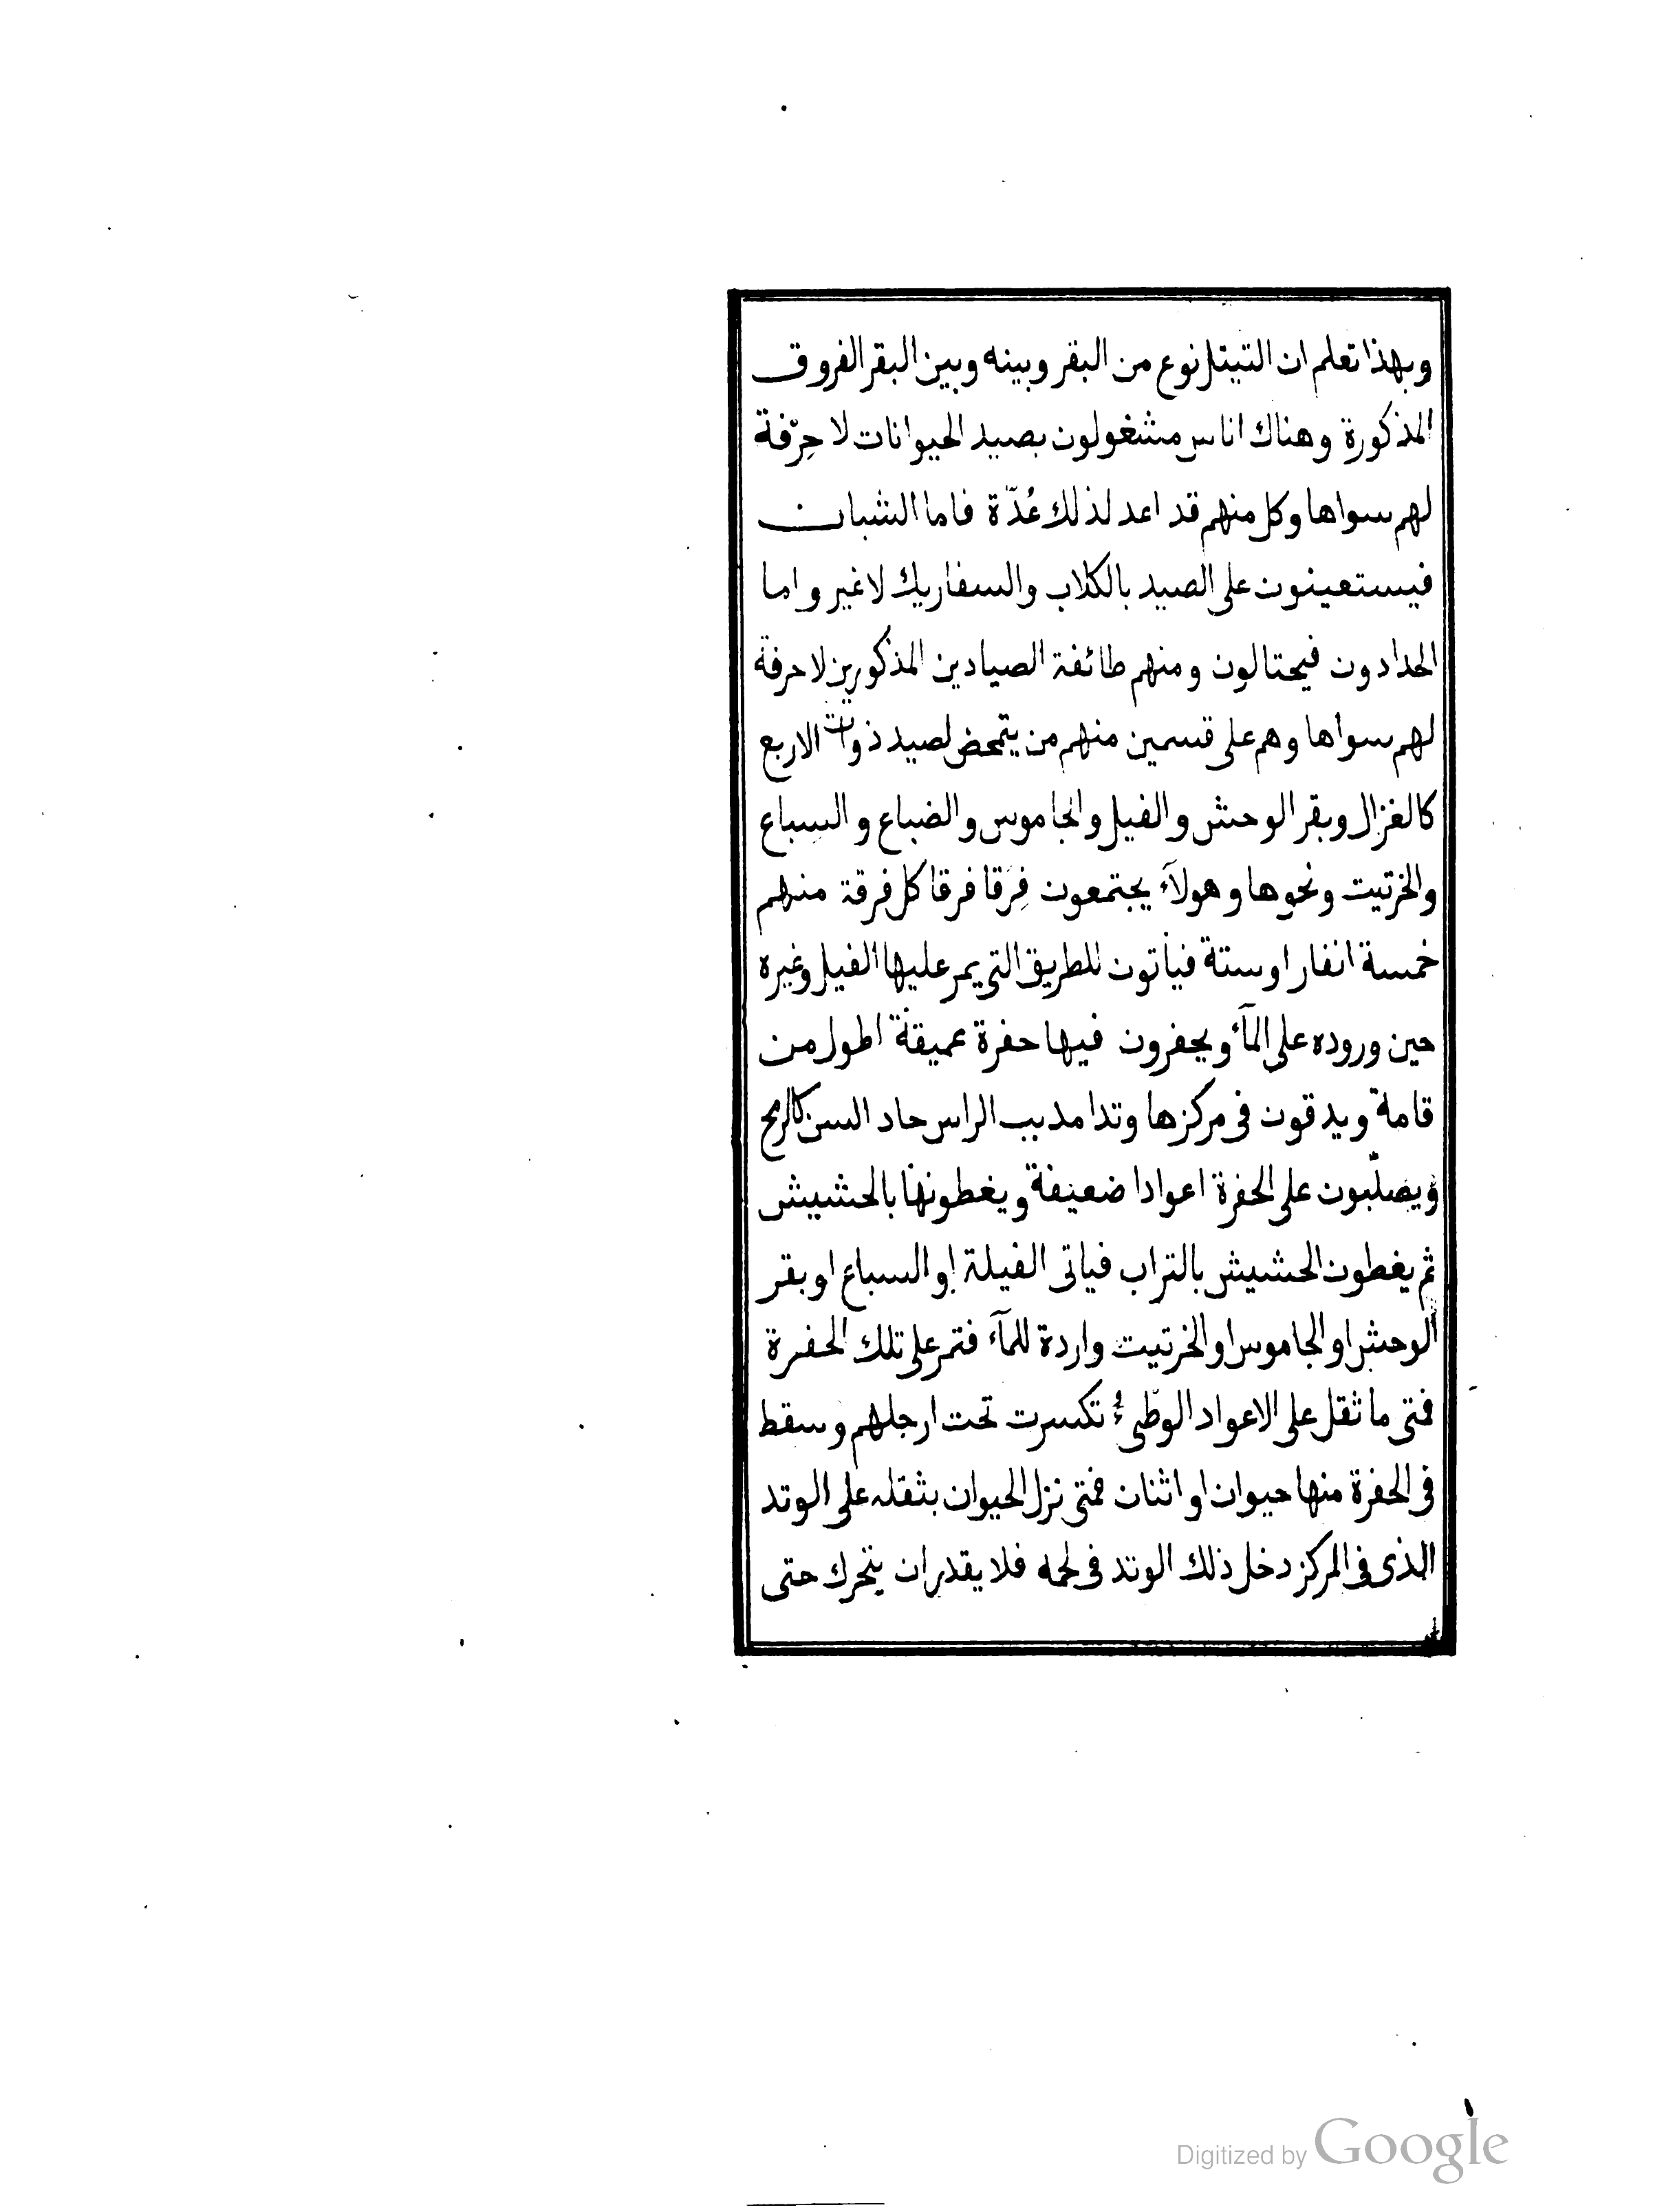 وبهذا تعلم ان التيتل نوع من البقر وبينه وبين البقر الفروق
المذكورة وهناك اناس مشغولون بصيد الحيوانات لا حِرْفة
لهم سواها وكل منهم قد اعد لذلك عُدّة فاما الشبان
فيستعينون على الصيد بالكلاب والسفاريك لاغير واما
الحدادون فيحتالون ومنهم طائفة الصيادين المذكورين لا حرفة
لهم سواها وهم على قسمين منهم من يتمحض لصيد ذوات الاربع
كالغزال وبقر الوحش والفيل والجاموس والضباع والسباع
والخرتيت ونحوها وهولآء يجتمعون فِرَقا فرقا كل فرقة منهم
خمسة انفار اوستة فيأتون للطريق التى يمر عليها الفيل وغيره
حين وروده على المآء ويحفرون فيها حفرة عميقة اطول من
قامة ويدقون فى مركزها وتدا مدبب الراس حاد السن كالرمح
ويصلّبون على الحفرة اعوادا ضعيفة ويغطونها بالحشيش
ثم يغطون الحشيش بالتراب فياتى الفيلة او السباع او بقر
الوحش او الجاموس او الخرتيت واردة للمآء فتمر على تلك الحفرة
فمتى ما ثقل على الاعواد الوطىءُ تكسرت تحت ارجلهم وسقط
فى الحفرة منها حيوان او اثنان فمتى نزل الحيوان بثقله على الوتد
الذى فى المركز دخل ذلك الوتد فى لحمه فلا يقدر ان يتحرك حتى
Digitized by Google